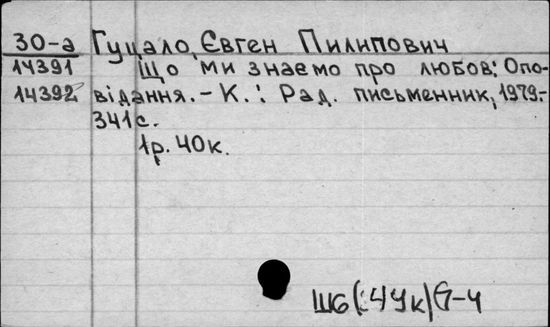 30-а Гуцало, Євген Пилипович
14391 Що ми знаємо про любов: Опо-
14392 відання. - К.: Рад. письменник, 1979.-
341с.
1р. 40к.
Ш6(:4Ук)6-4